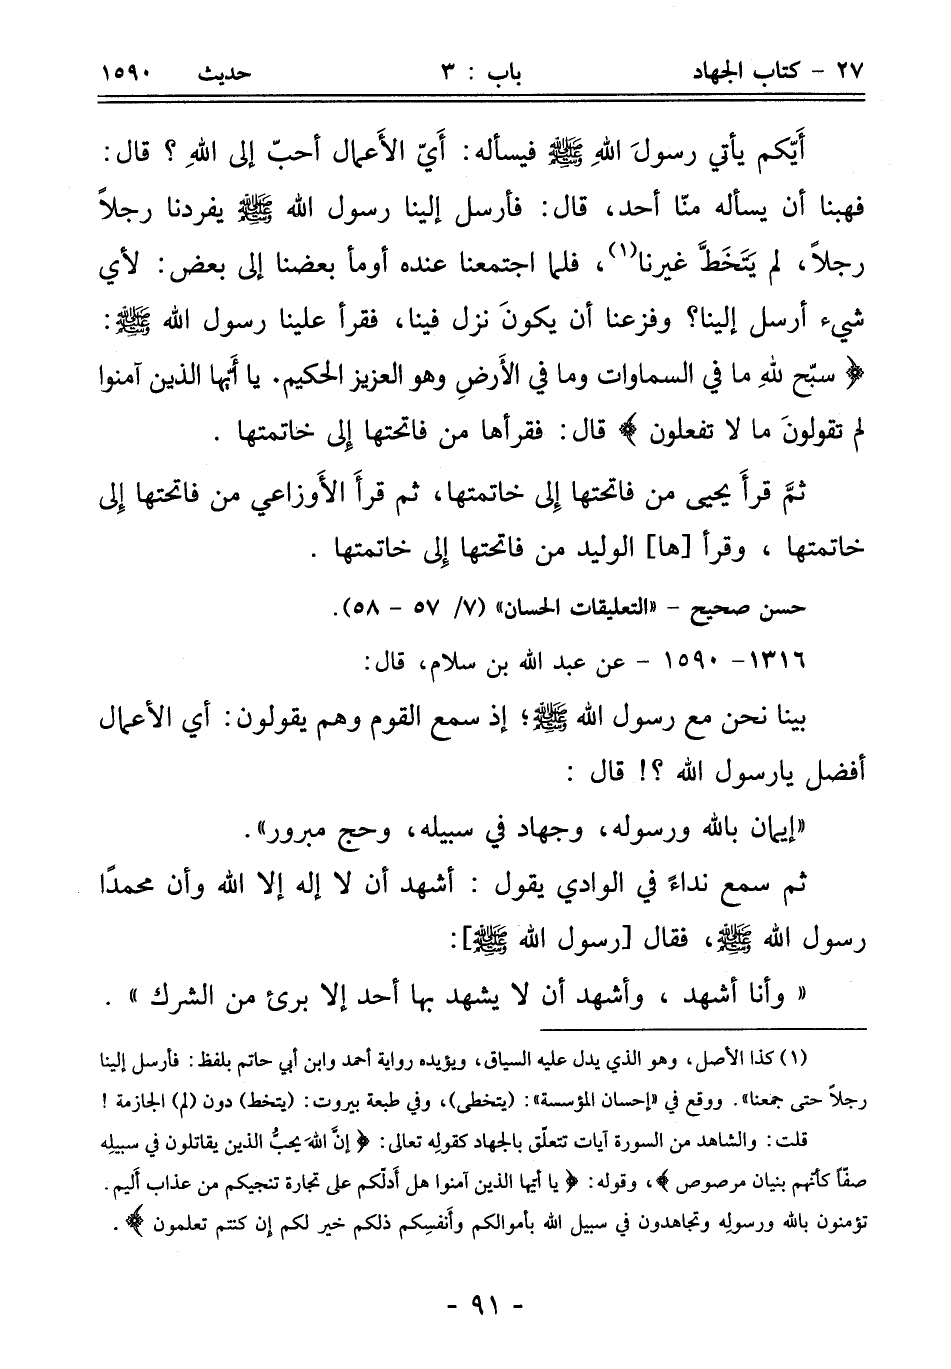 ٢٧ - كتاب الجهاد باب : ٣ حديث ١٥٩٠
أَيّكم يأتي رسولَ اللهِ ﷺ فيسأله: أَيّ الأَعمال أحبّ إلى اللهِ ؟ قال:
فهبنا أن يسأله منّا أحد، قال: فأرسل إلينا رسول الله ﷺ يفردنا رجلاً
رجلاً، لم يَتَخَطَّ غيرنا(١)، فلما اجتمعنا عنده أومأ بعضنا إلى بعض: لأي
شيء أرسل إلينا؟ وفزعنا أن يكونَ نزل فينا، فقرأ علينا رسول الله ﷺ:
﴿ سبّح للهِ ما في السماوات وما في الأَرضِ وهو العزيز الحكيم. يا أَيّها الذين آمنوا
لم تقولونَ ما لا تفعلون ﴾ قال: فقرأها من فاتحتها إلى خاتمتها .
ثمَّ قرأَ يحيى من فاتحتها إِلى خاتمتها، ثم قرأَ الأَوزاعي من فاتحتها إِلى
خاتمتها ، وقرأ [ها] الوليد من فاتحتها إلى خاتمتها .
حسن صحيح - «التعليقات الحسان» (٧/ ٥٧ - ٥٨).
١٣١٦- ١٥٩٠ - عن عبد الله بن سلام، قال:
بينا نحن مع رسول الله ﷺ؛ إذ سمع القوم وهم يقولون: أي الأعمال
أفضل يارسول الله ؟! قال :
«إيمان بالله ورسوله، وجهاد في سبيله، وحج مبرور».
ثم سمع نداءً في الوادي يقول : أشهد أن لا إله إلا الله وأن محمدًا
رسول الله ﷺ، فقال [رسول الله ﷺ]:
« وأنا أشهد ، وأشهد أن لا يشهد بها أحد إلا برئ من الشرك » .
(١) كذا الأصل، وهو الذي يدل عليه السياق، ويؤيده رواية أحمد وابن أبي حاتم بلفظ: فأرسل إلينا
رجلاً حتى جمعنا». ووقع في «إحسان المؤسسة»: (يتخطى)، وفي طبعة بيروت: (يتخط) دون (لم) الجازمة !
قلت: والشاهد من السورة آيات تتعلّق بالجهاد كقوله تعالى: ﴿ إنَّ اللهَ يحبُّ الذين يقاتلون في سبيلِه
صفّاً كأنّهم بنيان مرصوص ﴾، وقوله: ﴿ يا أيّها الذين آمنوا هل أدلّكم على تجارة تنجيكم من عذاب أليم.
تؤمنون بالله ورسولِه وتجاهدون في سبيل الله بأموالكم وأَنفسِكم ذلكم خير لكم إن كنتم تعلمون ﴾ .
- ٩١ -